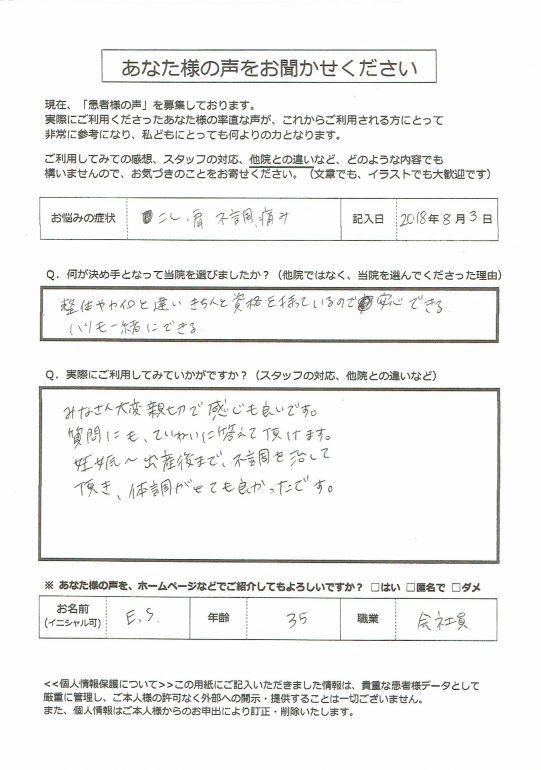 あなた様の声をお聞かせください
現在、「患者様の声」を募集しております。
実際にご利用くださったあなた様の率直な声が、これからご利用される方にとって
非常に参考になり、私どもにとっても何よりの力となります。
ご利用してみての感想、スタッフの対応、他院との違いなど、どのような内容でも
構いませんので、お気づきのことをお寄せください。（文章でも、イラストでも大歓迎です）
お悩みの症状 こし、肩 不調、痛み 記入日 2018年8月3日
Q．何が決め手となって当院を選びましたか？（他院ではなく、当院を選んでくださった理由）
整体やカイロと違い きちんと資格を持っているので 安心できる
ハリも一緒にできる
Q．実際にご利用してみていかがですか？（スタッフの対応、他院との違いなど）
みなさん大変親切で感じも良いです。
質問にも、ていねいに答えて頂けます。
妊娠～出産後まで、不調を治して
頂き、体調がとても良かったです。
※ あなた様の声を、ホームページなどでご紹介してもよろしいですか？ □はい □匿名で □ダメ
お名前 E.S. 年齢 35 職業 会社員
(イニシャル可)
<<個人情報保護について>>この用紙にご記入いただきました情報は、貴重な患者様データとして
厳重に管理し、ご本人様の許可なく外部への開示・提供することは一切ございません。
また、個人情報はご本人様からのお申出により訂正・削除いたします。